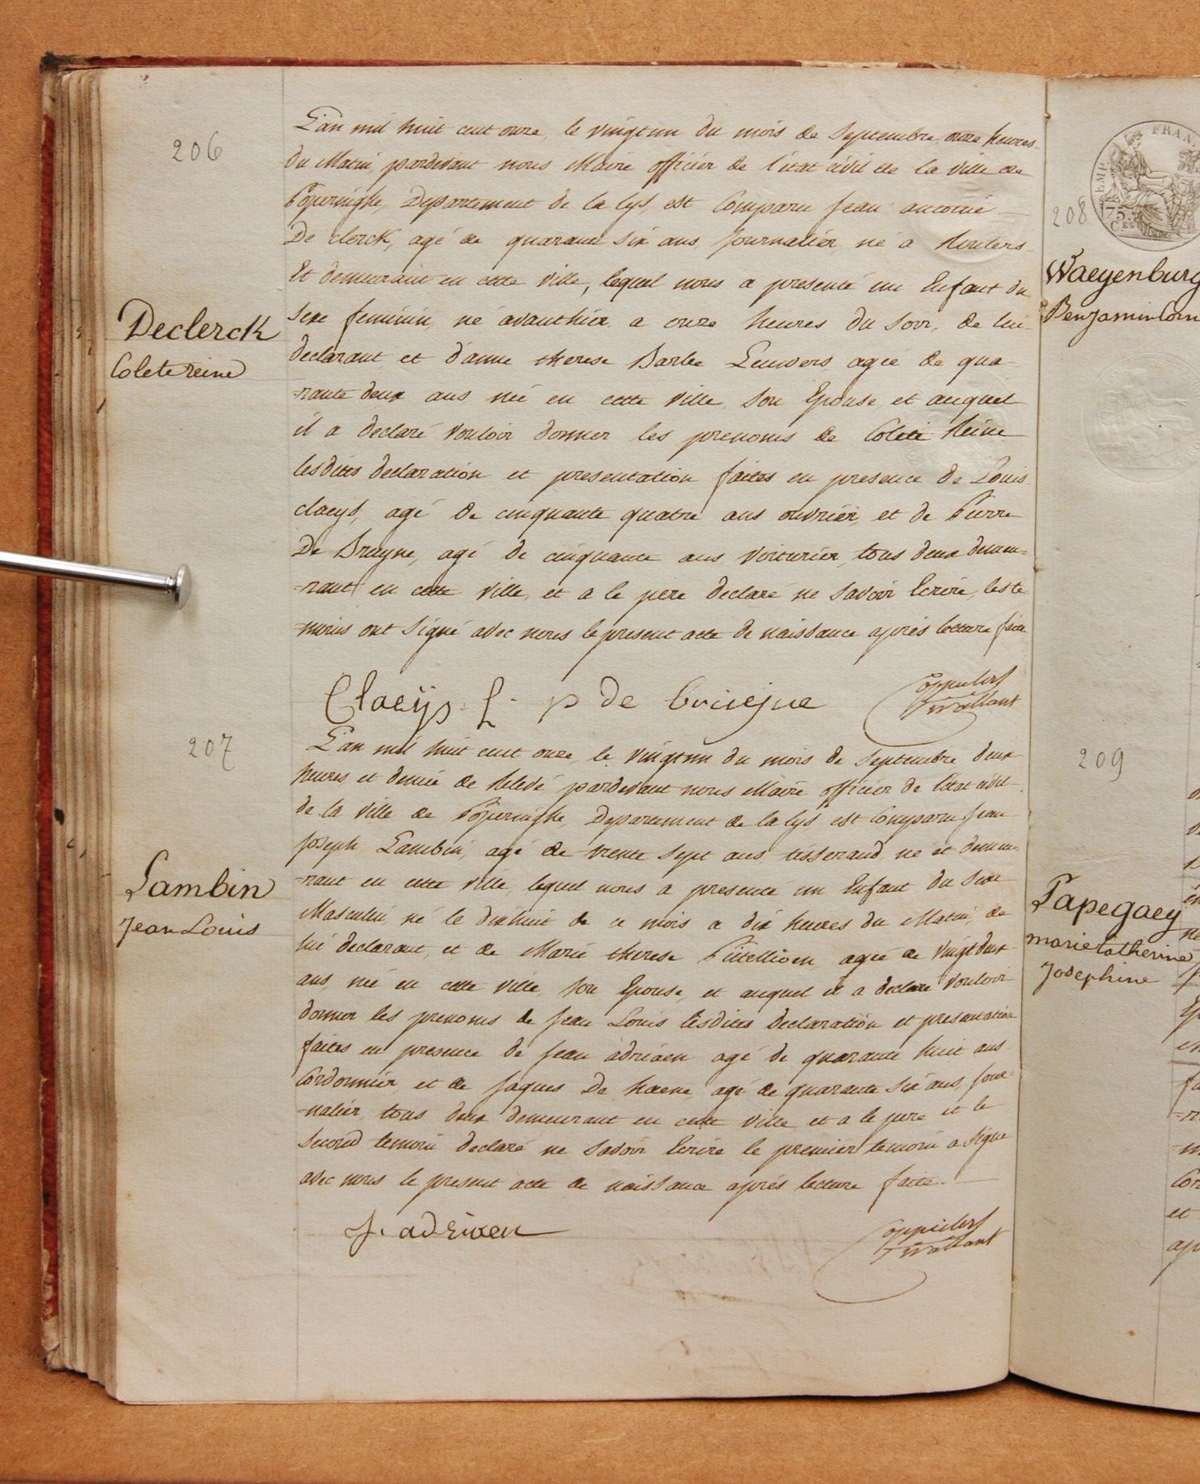 206
Declerck
Colete reine
L'an mil huit cent onze le vingt un du mois de Septembre onze heures
du Matin pardevant nous Maire officier de l'état civil de la ville de
Poperinghe, Departement de la Lys, est Comparu Jean antoine
De clerck, agé de quarante Six ans Journalier né a
Et demeurant en cette ville, lequel nous a presenté un Enfant du
Sexe feminin, né avanthier a onze heures du Soir, de lui
declarant et d'anne therese Barbe Leuwers agée de qua
-rante deux ans née en cette ville Son Epouse et auquel
il a declaré vouloir donner les prenoms de Colete Reine
lesdites declaration et presentation faites en presence de Louis
claeys, agé de cinquante quatre ans ouvrier et de Pierre
De Bruyne, agé de cinquante ans voiturier, tous deux demeu-
-rant en cette ville, et a le pere declaré ne Savoir Ecrire, les te
-moins ont Signé avec nous le present acte de naissance après lecture faite
Claeÿs L. p de bruiejne
207
Lambin
Jean Louis
L'an mil huit cent onze le vingt un du mois de Septembre deux
heures et demie de Relevé pardevant nous Maire officier de l'état civil
de la ville de Poperinghe, Departement de la Lys est Comparu Jean
Joseph Lambin, agé de trente Sept ans tisserand né et demeu-
-rant en cette ville lequel nous a presenté un Enfant du Sexe
Masculin né le dixhuit de ce mois a dix heures du Matin, de
lui declarant, et de Marie therese agée de vingt deux
ans, née en cette ville, Son Epouse, et auquel il a declaré vouloir
donner les prenoms de Jean Louis lesdites declaration et presentation
faites en presence de Jean adriaen agé de quarante huit ans
Cordonnier et de Jaques De haene agé de quarante Six ans, Jour-
-nalier tous deux demeurant en cette ville et a le pere et le
Second temoin declaré ne Savoir Ecrire le premier temoin a Signé
avec nous le present acte de naissance après lecture faite.
J. adriaen
208
Waeyenburg
Benjamin Corn
209
Papegaey
marie Catherine
Josephine